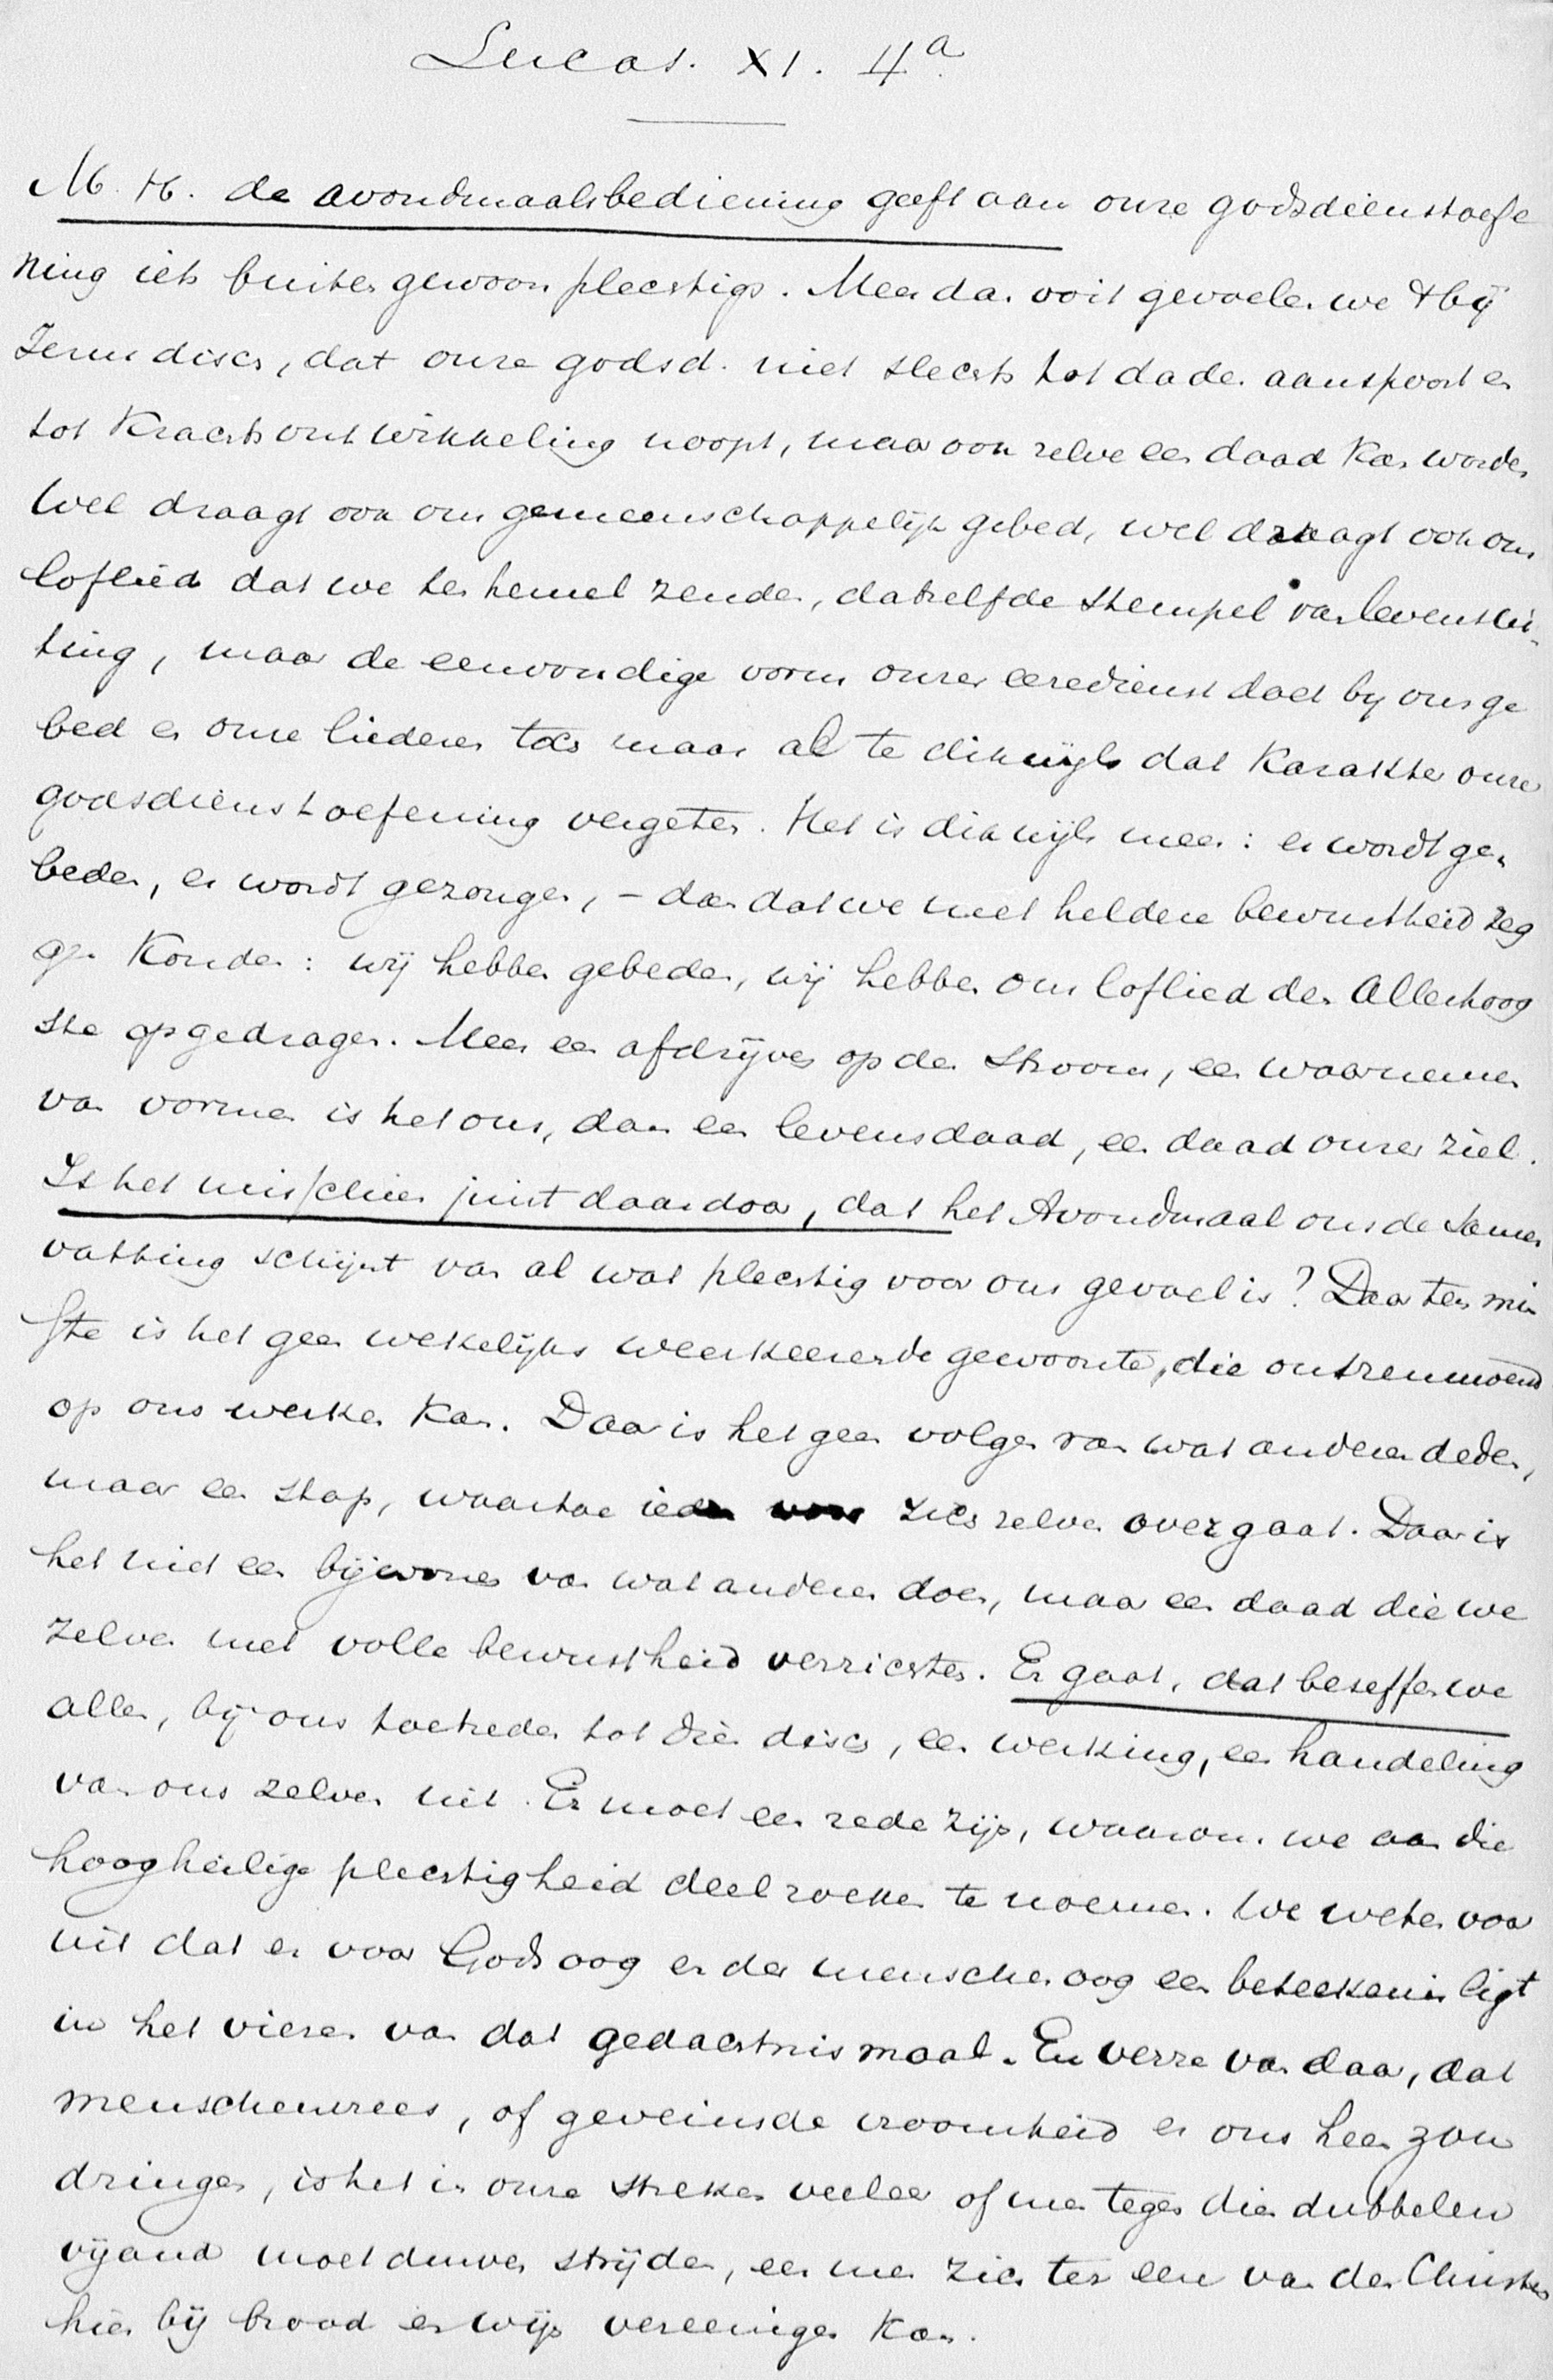 Lucas. XI. 4a
M. H. de avondmaalsbediening geeft aan onze godsdienstoefe
ning iets buitengewoon plechtigs. Meer dan ooit gevoelen we bij
Jezus disch, dat onze godsd. niet slechts tot daden aanspoort en
tot krachtsontwikkeling noopt, maar ook zelve een daad kan worden
Wel draagt ook ons gemeenschappelijk gebed, wel draagt ook ons
loflied dat we ten hemel zenden, datzelfde stempel van levensui-
ting, maar de eenvoudige vorm onzer eeredienst doet bij ons ge
bed en onze liederen toch maar al te dikwijls dat karakter onzer
godsdienstoefening vergeten. Het is dikwijls meer: er wordt ge-
beden, er wordt gezongen, – dan dat we met heldere bewustheid zeg
gen konden: wij hebben gebeden, wij hebben ons loflied den Allerhoog
ste opgedragen. Meer een afdrijven op den stroom, een waarnemen
van vormen is het ons, dan een levensdaad, een daad onzer ziel.
Is het misschien juist daardoor, dat het Avondmaal ons de samen
vatting schijnt van al wat plechtig voor ons gevoel is? Daar ten min
ste is het geen wekelijks weerkeerende gewoonte, die ontzenuwend
op ons werken kan. Daar is het geen volgen van wat anderen deden,
maar een stap, waartoe ieder voor zich zelven overgaat. Daar is
het niet een bijwonen van wat anderen doen, maar een daad die we
zelven met volle bewustheid verrichten. Er gaat, dat beseffen we
allen, bij ons toetreden tot dien disch, een werking, een handeling
van ons zelven uit. Er moet een rede zijn, waarom we aan die
hoogheilige plechtigheid deel zoeken te noemen. We weten voor
uit dat er voor Gods oog en der menschen oog een beteekenis ligt
in het vieren van dat gedachtnismaal. En verre van daar, dat
menschenvrees, of geveinsde vroomheid er ons heen zou
dringen, is het in onze streken veeleer of men tegen dien dubbelen
vijand moet durven strijden, eer men zich ten eere van den Christus
hier bij brood en wijn vereenigen kan.